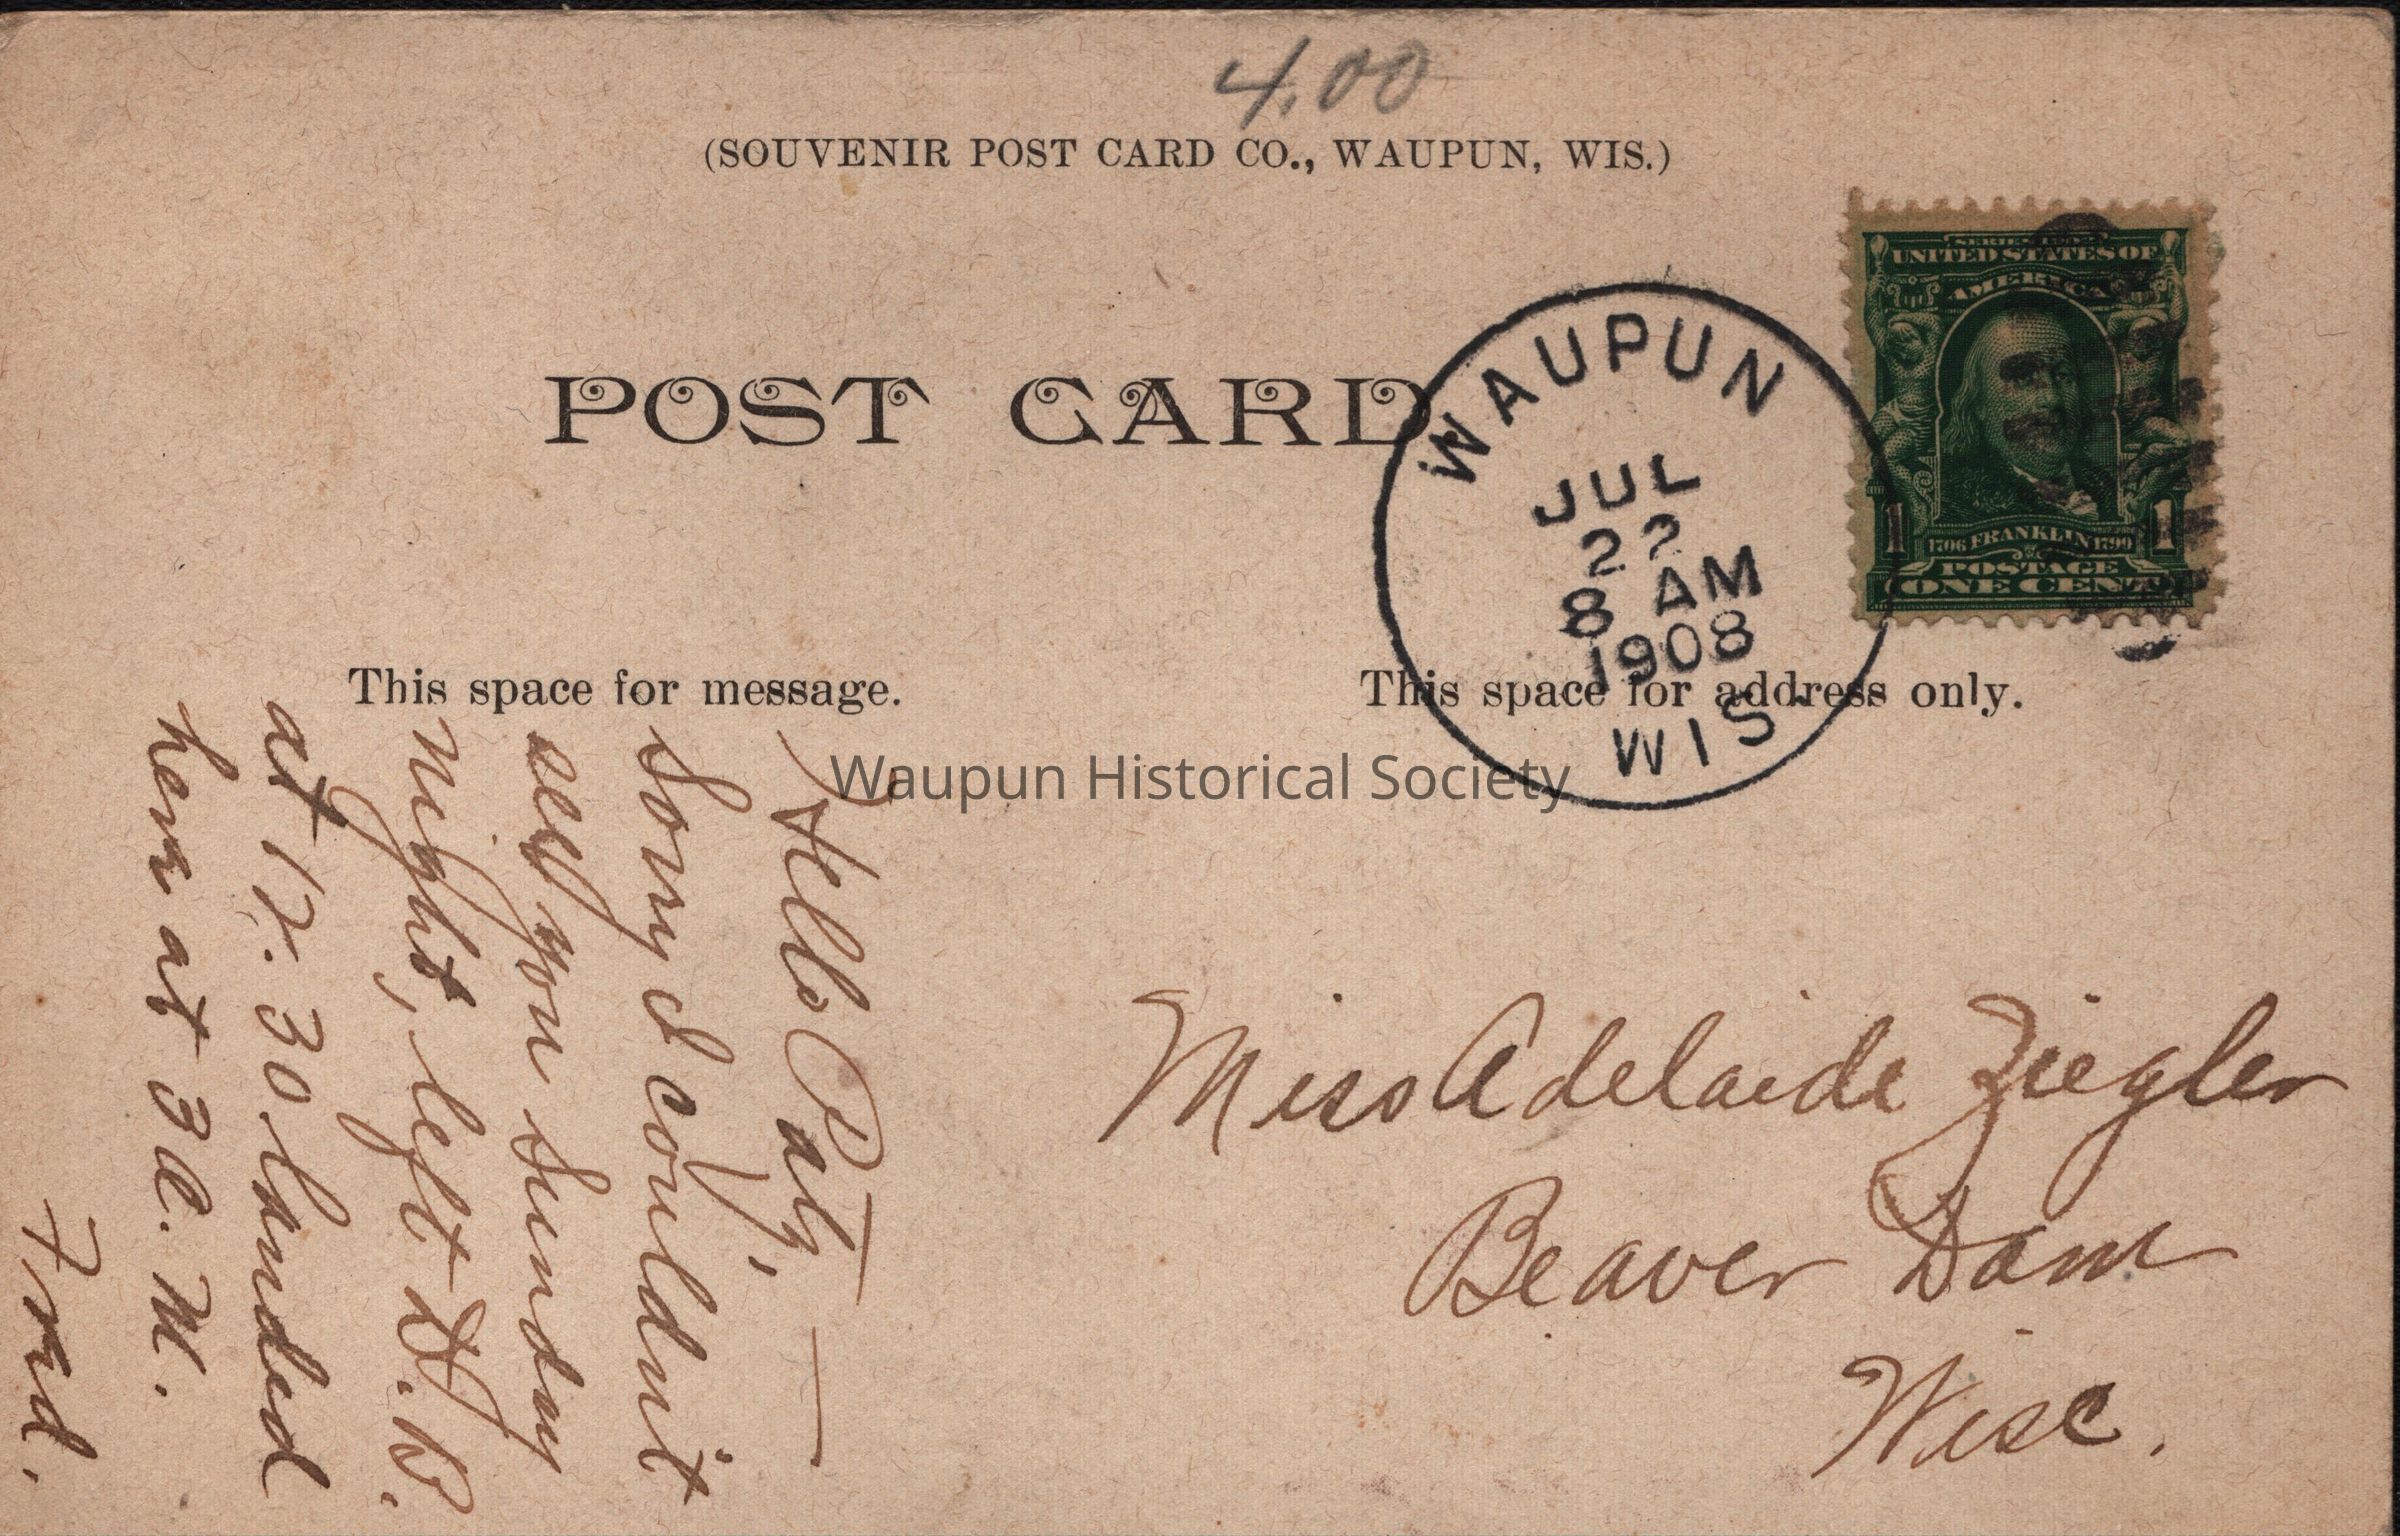 4.00
(SOUVENIR POST CARD CO., WAUPUN, WIS.)
POST CARD
WAUPUN
JUL
22
8 AM
1908
WIS.
SERIES 1902
UNITED STATES OF
AMERICA
1706 FRANKLIN 1790
1 1
POSTAGE
ONE CENT
This space for message.
This space for address only.
Waupun Historical Society
Hello Paty, —
Sorry I couldnit
see you Sunday
night, left B.
at 12:30 landed
here at 3 A.M.
Fred.
Miss Adelaide Ziegler
Beaver Dam
Wisc.